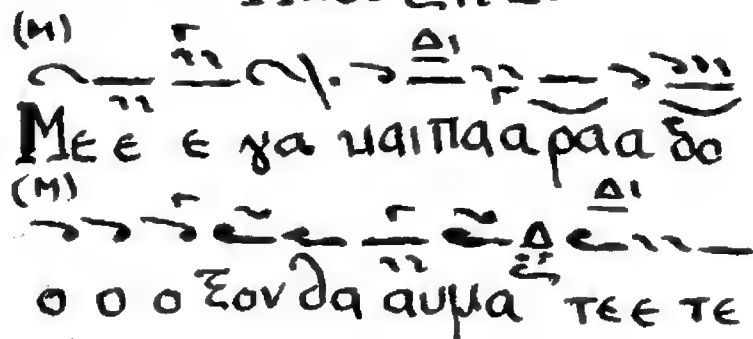 (Μ)
Με ε ε γα και πα α ρα α δο
(Μ)
ο ο ο ξον θα αυμα τε ε τε